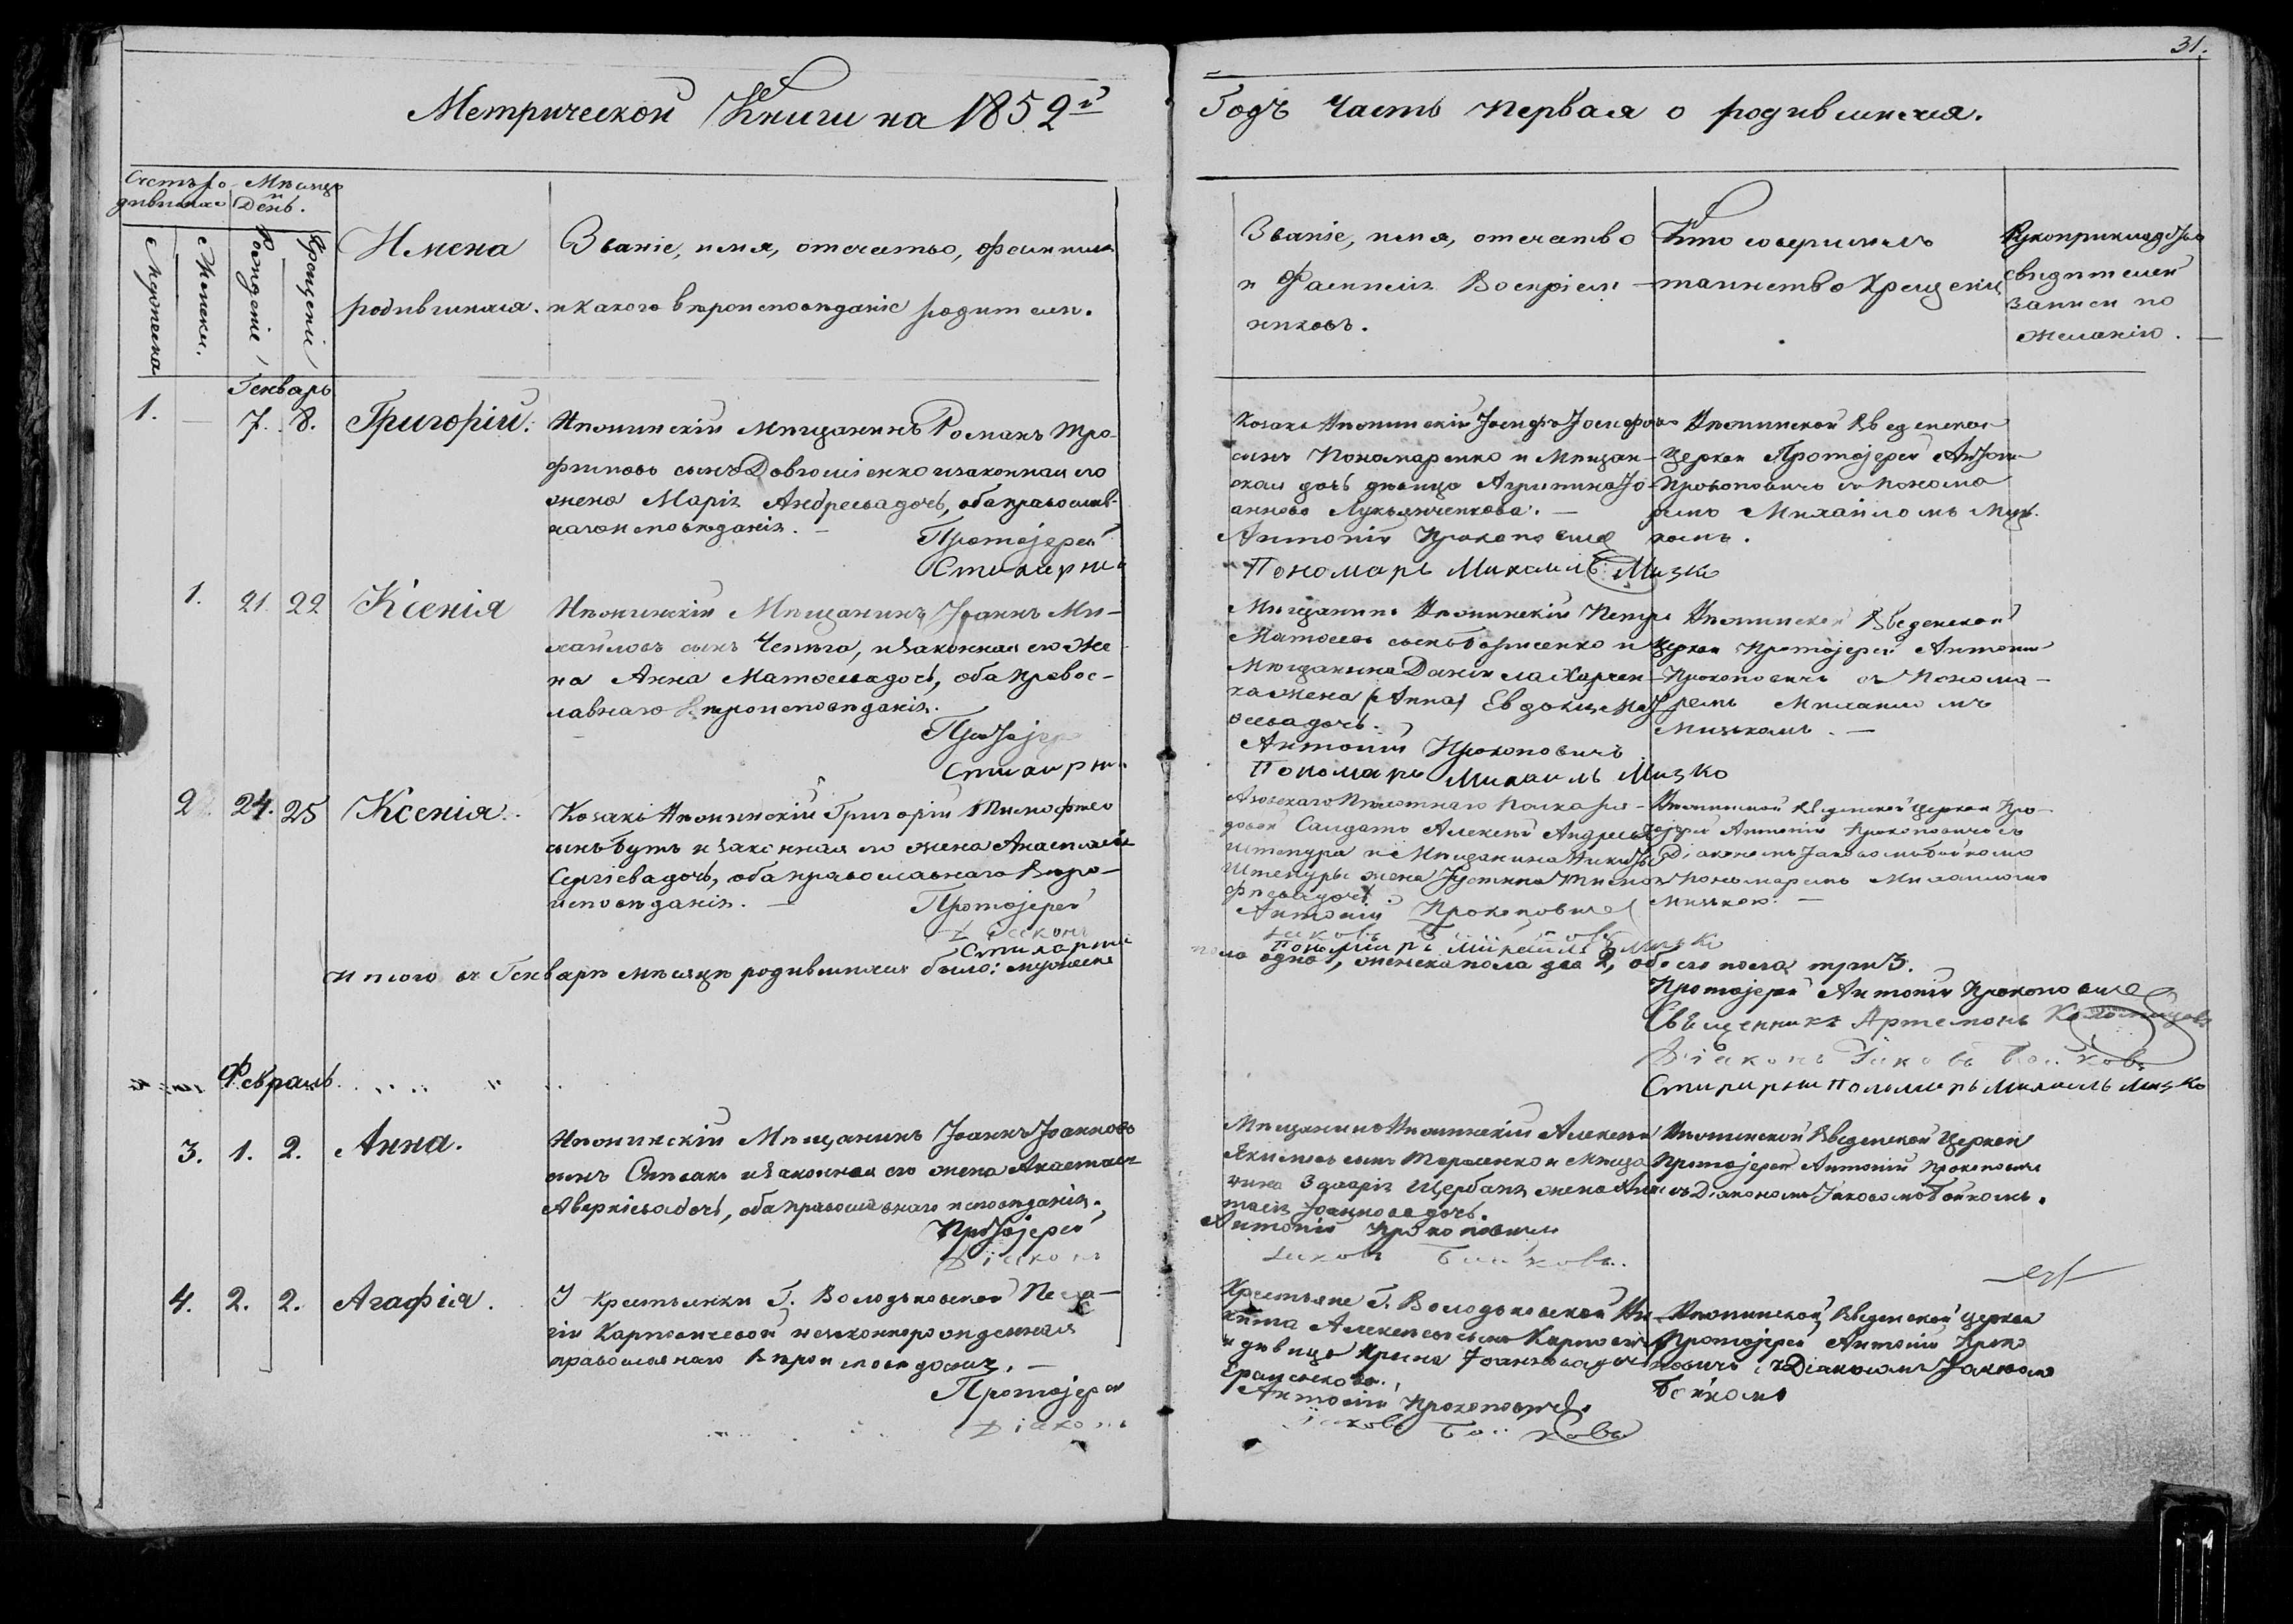 31.
Метрической Книги на 1852й
Годъ Часть первая о родившихся.
Счетъ ро-
дившихся
Мѣсяцъ
и
День.
Мужеска
Женски.
Рожденія
Крещенія
Имена
родившихся.
Званіе, имя, отечество, фамилія
и какого вѣроисповѣданія родители.
Званіе, имя, отечество
и Фамилія Воспріем-
никовъ.
Кто совершилъ
таинство Крещенія
Рукоприкладство
свидѣтелей
записи по
желанію.
Генварь
1. 7. 8. Григорій.
Мѣщанинъ Романъ Тро-
фимовъ сынъ и законная его
жена Марія Андреева дочь, оба православ-
наго исповѣданія.
Протоіерей
Стихарный
Козакъ Іосифъ Іосифовъ
сынъ Пономаренко и Мѣщан-
ская дочь дѣвица Агрипина Іо-
аннова Лукьянченкова.
Антоній Прокоповичъ
Пономарь Михаилъ Мизко
Введенской
Церкви Протоіерей Антоній
Прокоповичъ съ Понома
ремъ Михайломъ Миз-
комъ.
1. 21. 22 Ксенія
Мѣщанинъ Іоаннъ Ми-
хайловъ сынъ и законная его Же
на Анна Матвеева дочь, оба правос-
лавнаго Вѣроисповѣданія.
Протоіер
Стихарный
Мѣщанинъ Петръ
Матвеевъ сынъ Борисенко и
Мѣщанина Даніила Харчен-
ка жена (Анна) Евдокія Мат
веева дочь.
Антоній Прокоповичъ
Пономарь Михаилъ Мизко
Введенской
Церкви Протоіерей Антоній
Прокоповичъ съ Понома-
ремъ Михаиломъ
Мизкомъ.
2. 24. 25 Ксенія.
Козакъ Григорій Тимофеевъ
сынъ Бутъ и законная его жена Анастасія
Сергіева дочь, оба православнаго Вѣро-
исповѣданія.
Протоіерей
Діаконъ
Стихарный
Пѣхотнаго Полка ря-
довой Солдатъ Алексѣй Андреевъ
Штепура и Мѣщанина Никиты
Штепуры жена Іустина Тимо
феева дочь.
Антоній Прокоповичъ
Іаковъ Бойковъ
Пономарь Михаилъ Мизко
Введенской Церкви Про-
тоіерей Антоній Прокоповичъ съ
Діакономъ Іаковомъ Бойкомъ
и Пономаремъ Михаиломъ
Мизкою.
Итого въ Генварѣ мѣсяцѣ родившихся было: мужеска
пола одно 1, женска пола два 2, обоего пола три 3.
Протоіерей Антоній Прокоповичъ
Священникъ Артемонъ
Діаконъ Іаковъ Бойковъ
Стихарный Пономарь Михаилъ Мизко
Февраль.
3. 1. 2. Анна.
Мѣщанинъ Іоаннъ Іоанновъ
сынъ и законная его жена Анастасія
Аверкіева дочь, оба православнаго исповѣданія.
Протоіерей
Діаконъ
Мѣщанинъ Алексѣй
Якимовъ сынъ Тарасенко и Мѣща
нина Щербака жена Анас
тасія Іоаннова дочь.
Антоній Прокоповичъ
Іаковъ Бойковъ.
Введенской Церкви
Протоіерей Антоній Прокоповичъ
съ Діакономъ Іаковомъ Бойкомъ.
4. 2. 2. Агафія.
У крестьянки Г. Володьковской Пела-
гіи Карповичевой незаконнорожденная
православнаго Вѣроисповѣданія.
Протоіерей
Діаконъ
Крестьяне Г. Володьковской Ни-
кита Алексѣевъ сынъ Карповичъ
и дѣвица Ирина Іоаннова дочь
Антоній Прокоповичъ.
Іаковъ Бойковъ
Введенской Церкви
Протоіерей Антоній Проко
повичъ съ Діакономъ Іаковомъ
Бойкомъ